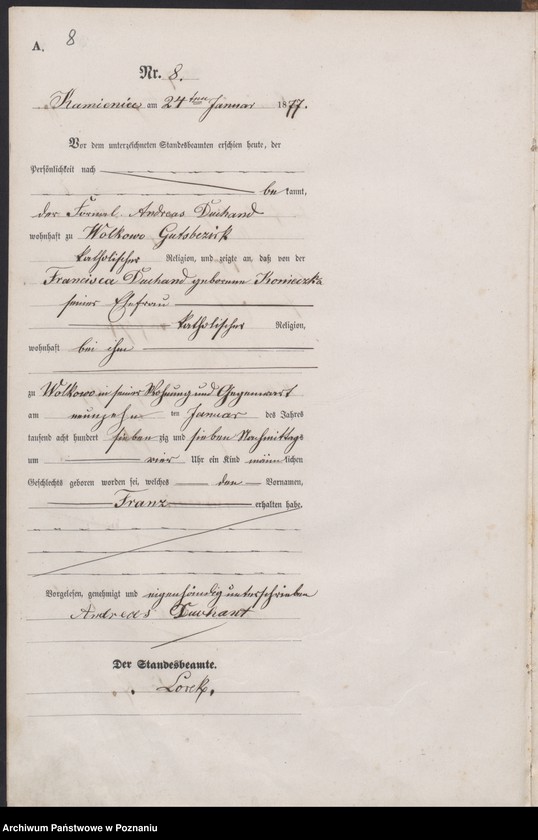 A. 8
Nr. 8.
Kamioniec am 24ten Januar 1877.
Vor dem unterzeichneten Standesbeamten erschien heute, der
Persönlichkeit nach
bekannt,
der Fornal Andreas Duchand
wohnhaft zu Wolkowo Gutsbezirk
katholischer Religion, und zeigte an, daß von der
Francisca Duchand geborenen Konieczka
seiner Ehefrau
katholischer Religion,
wohnhaft bei ihm
zu Wolkowo in seiner Wohnung und Gegenwart
am neunzehnten Januar des Jahres
tausend acht hundert siebenzig und sieben Nachmittags
um vier Uhr ein Kind männlichen
Geschlechts geboren worden sei, welches den Vornamen,
Franz erhalten habe.
Vorgelesen, genehmigt und eigenhändig unterschrieben
Andreas Duchant
Der Standesbeamte.
Lorek.
Archiwum Państwowe w Poznaniu